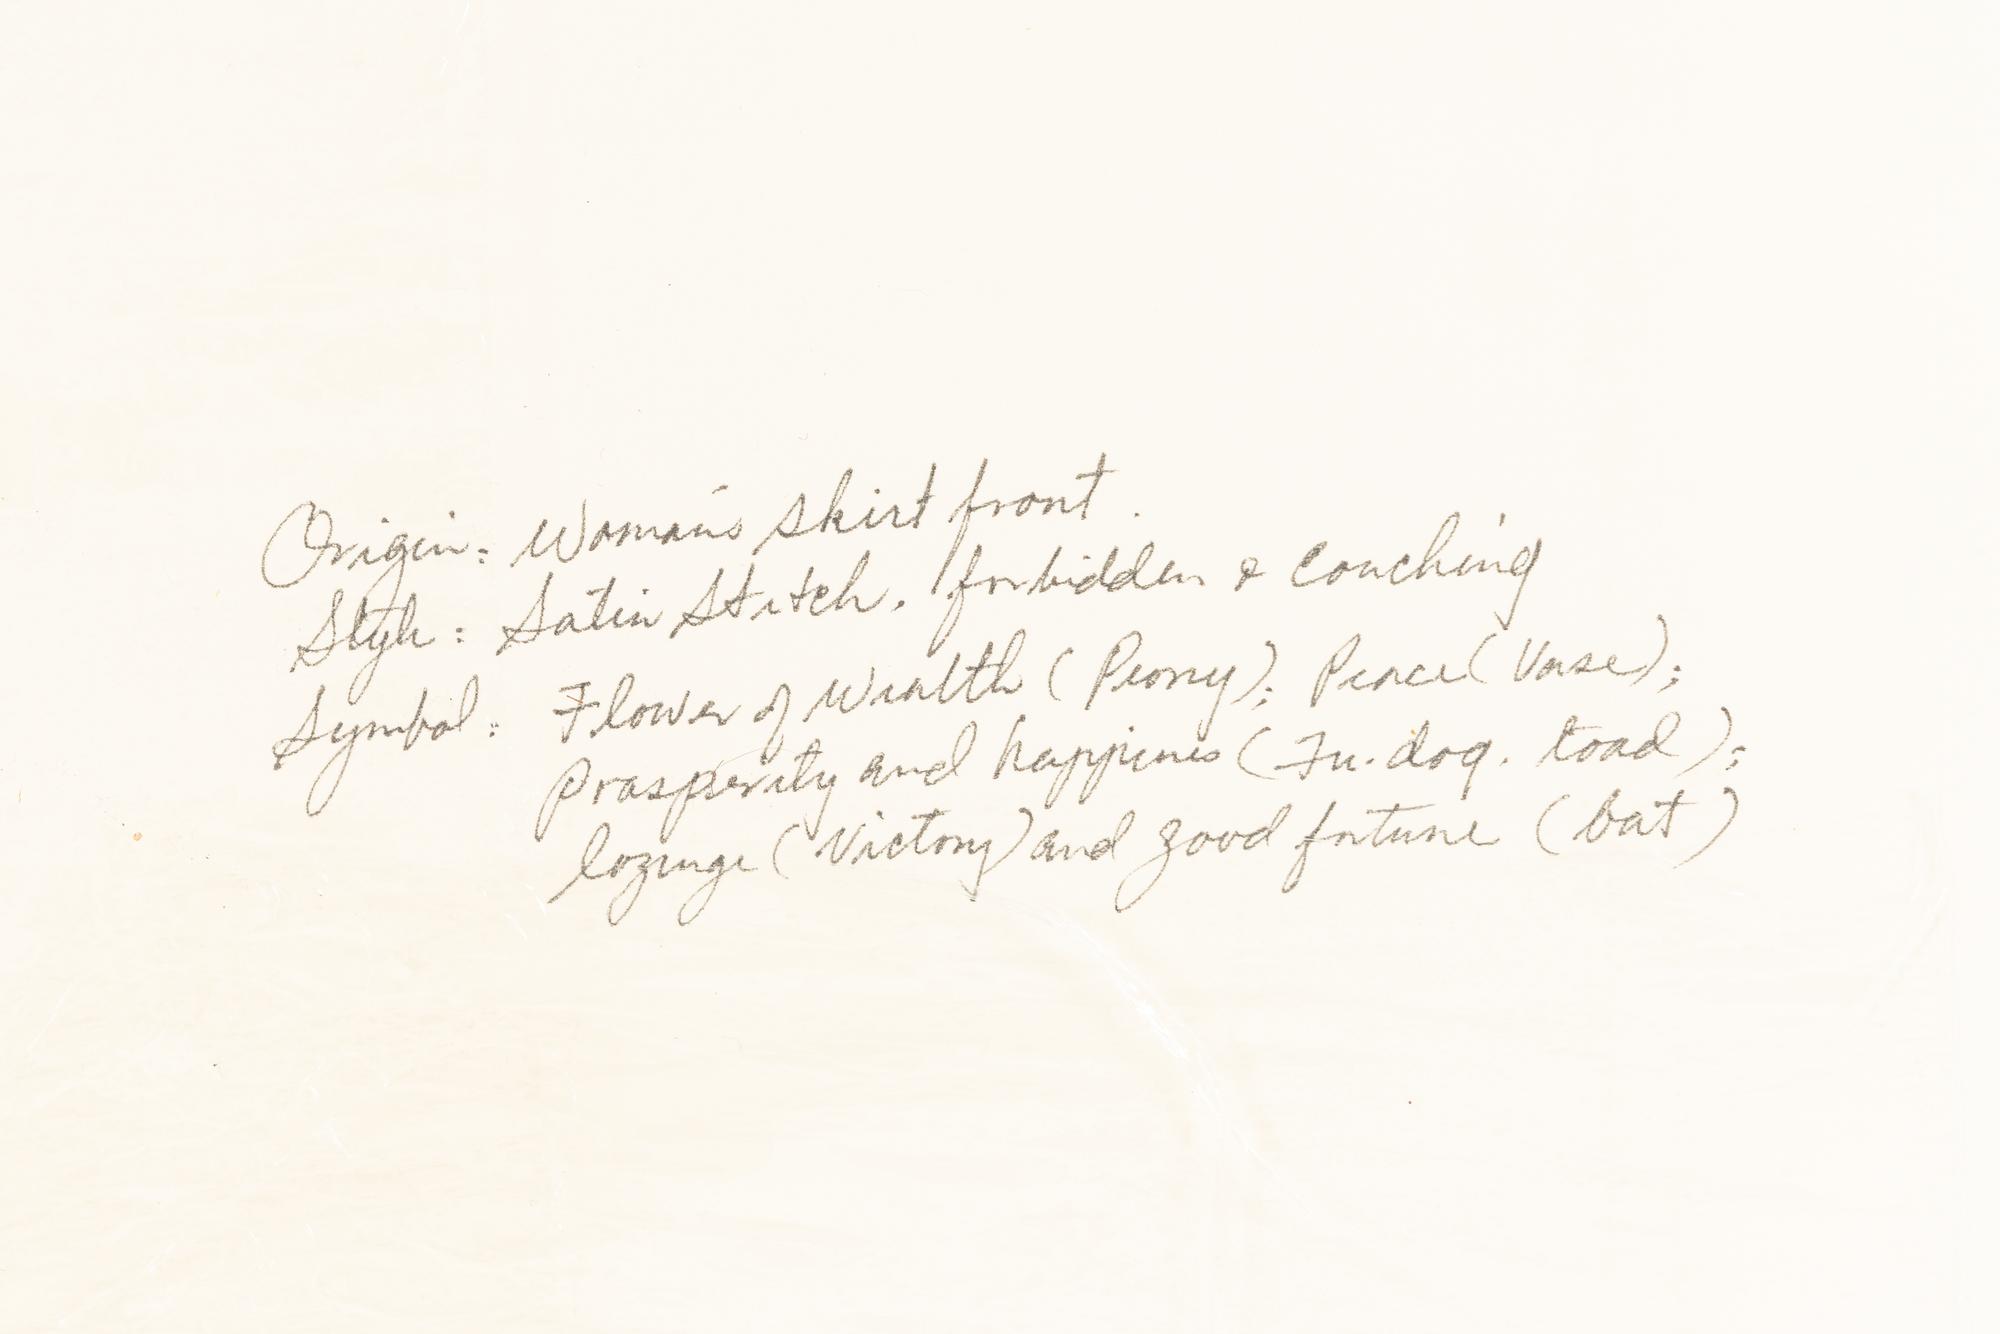 Origin: Woman's skirt front.
Style: Satin Stitch, forbidden & Couching
Symbol: Flower of Wealth (Peony); Peace (Vase);
Prosperity and happiness (Fu. dog. toad);
lozenge (Victory) and good fortune (bat)